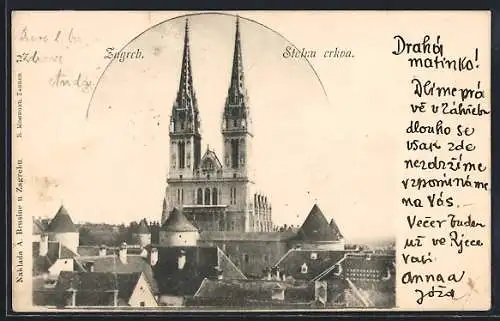 Zagreb.
Stolna crkva.
Naklada A. Brusine u Zagrebu.
Drahá
matinko!
Dlíme prá
vě v Záhřeb
dlouho se
však zde
nezdržíme
vzpomínáme
na Vás.
Večer budem
už ve Rjece
Vaši
Anna a
Józa